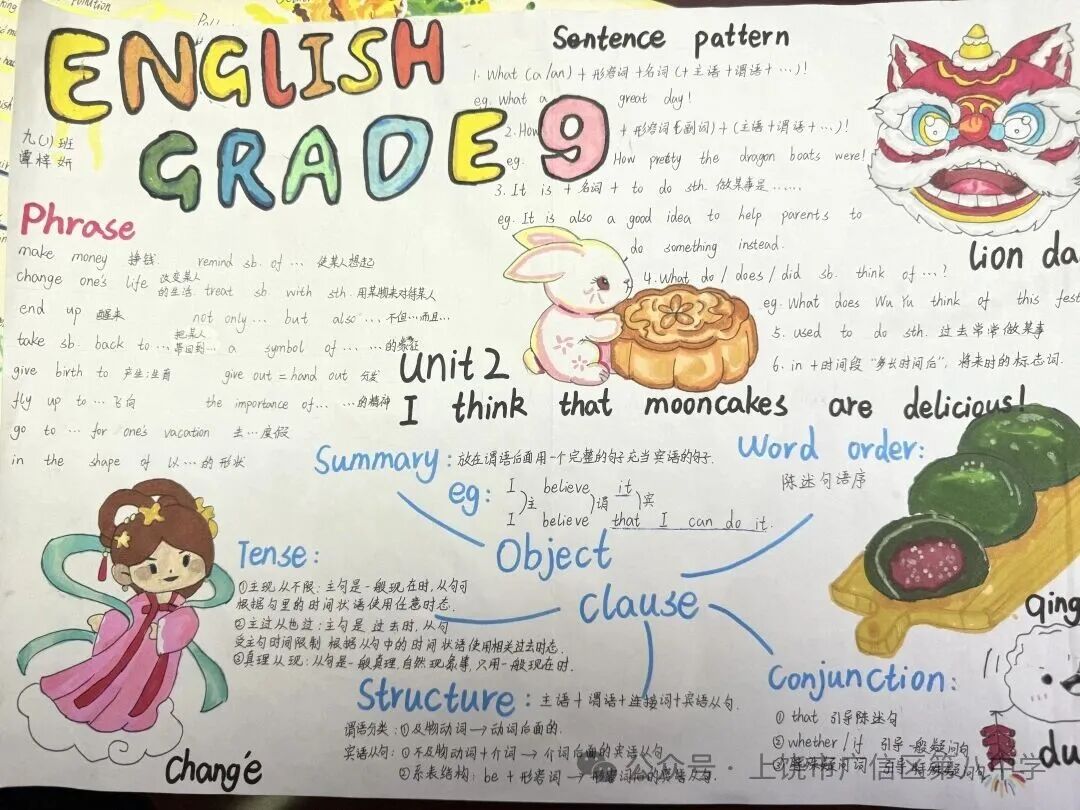 ENGLISH
GRADE 9
九(1)班
覃梓妍
Sentence pattern
1. What (a/an) + 形容词 + 名词 (+ 主语 + 谓语 + …)!
eg. What a great day!
2. How + 形容词(副词) + (主语 + 谓语 + …)!
eg. How pretty the dragon boats were!
3. It is + 名词 + to do sth. 做某事是……
eg. It is also a good idea to help parents to
do something instead.
4. What do / does / did sb. think of …?
eg. What does Wu Yu think of this fest
5. used to do sth. 过去常常做某事
6. in + 时间段 "多长时间后", 将来时的标志词.
lion da
Phrase
make money 挣钱 remind sb. of … 使某人想起
change one's life 改变某人的生活. treat sb. with sth. 用某物来对待某人
end up 醒来 not only … but also … 不但…而且…
take sb. back to … 把某人带回到… a symbol of … …的象征
give birth to 产生;生育 give out = hand out 分发
fly up to … …飞向 the importance of … …的精神
go to … for one's vacation 去…度假
in the shape of 以…的形状
unit 2
I think that mooncakes are delicious!
Summary: 放在谓语后面用一个完整的句子充当宾语的句子.
eg: I believe it
主 谓 宾
I believe that I can do it.
Word order:
陈述句语序
Object
clause
Tense:
①主现从不限: 主句是一般现在时, 从句可
根据句里的时间状语使用任意时态.
②主过从也过: 主句是过去时, 从句
受主句时间限制 根据从句中的时间状语使用相关过去时态.
③真理从现: 从句是一般真理, 自然现象等, 只用一般现在时.
Structure: 主语 + 谓语 + 连接词 + 宾语从句.
谓语分类: ①及物动词 → 动词后面的.
宾语从句: ①不及物动词 + 介词 → 介词后面的宾语从句
②系表结构: be + 形容词 → 形容词后的宾语从句.
Conjunction:
① that 引导陈述句
② whether / if 引导一般疑问句
③特殊疑问词 引导特殊疑问句
chang'e
qing
du
公众号 · 上饶市广信区第八中学